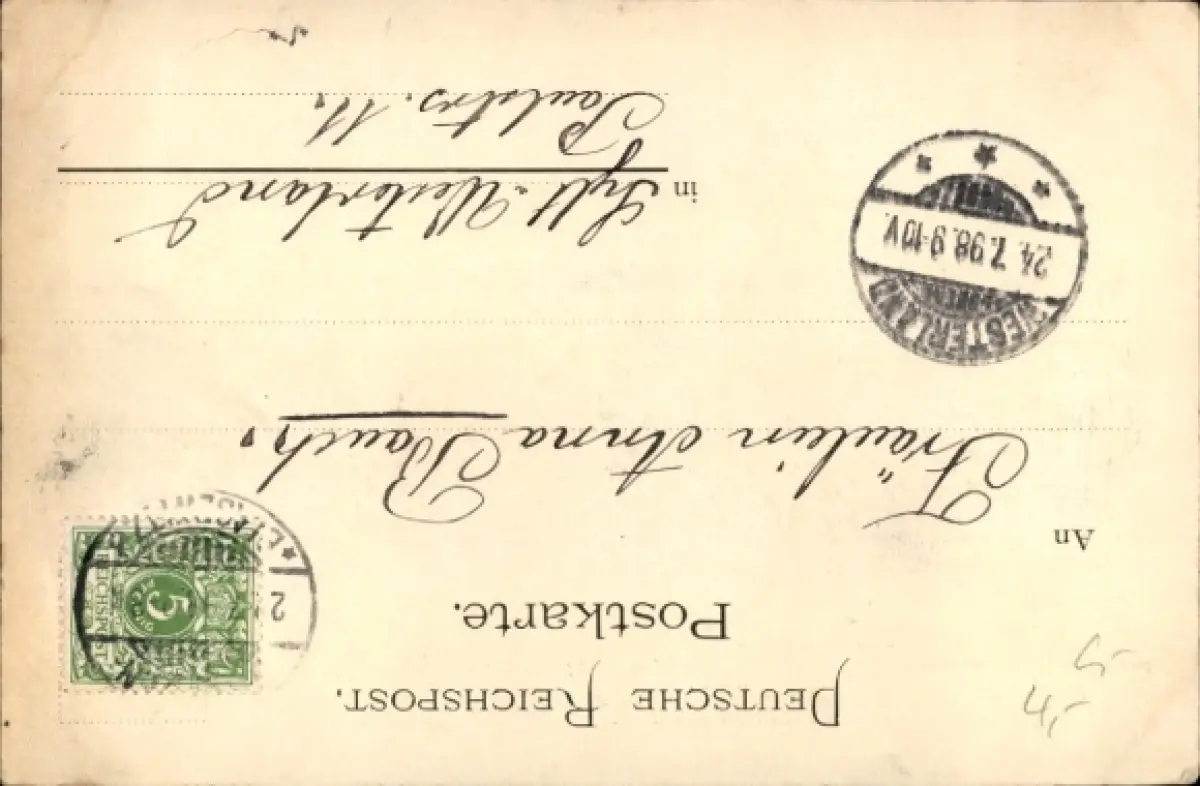 DEUTSCHE REICHSPOST.
Postkarte.
An
Fräulein Anna Bauch.
in
Sylt-Westerland
Paulstrs. 11.
WESTERLAND
24.7.98.9-10V.
5
REICHSPOST
2
4,-
5,-